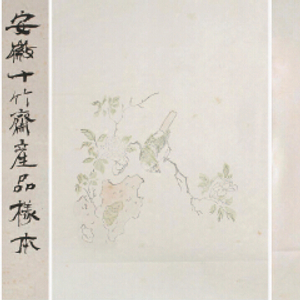 安徽十竹齋產品樣本